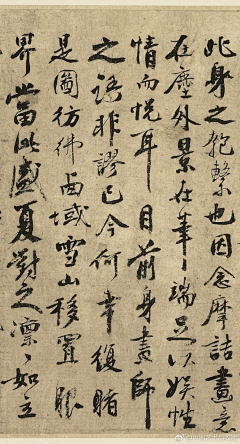 此身之匏繫也因念摩詰畫意
在塵外景在筆端足以娛性
情而悅耳目前身畫師
之語非謬已今何幸復睹
是圖彷彿西域雪山移置眼
界當此盛夏對之凜々如立